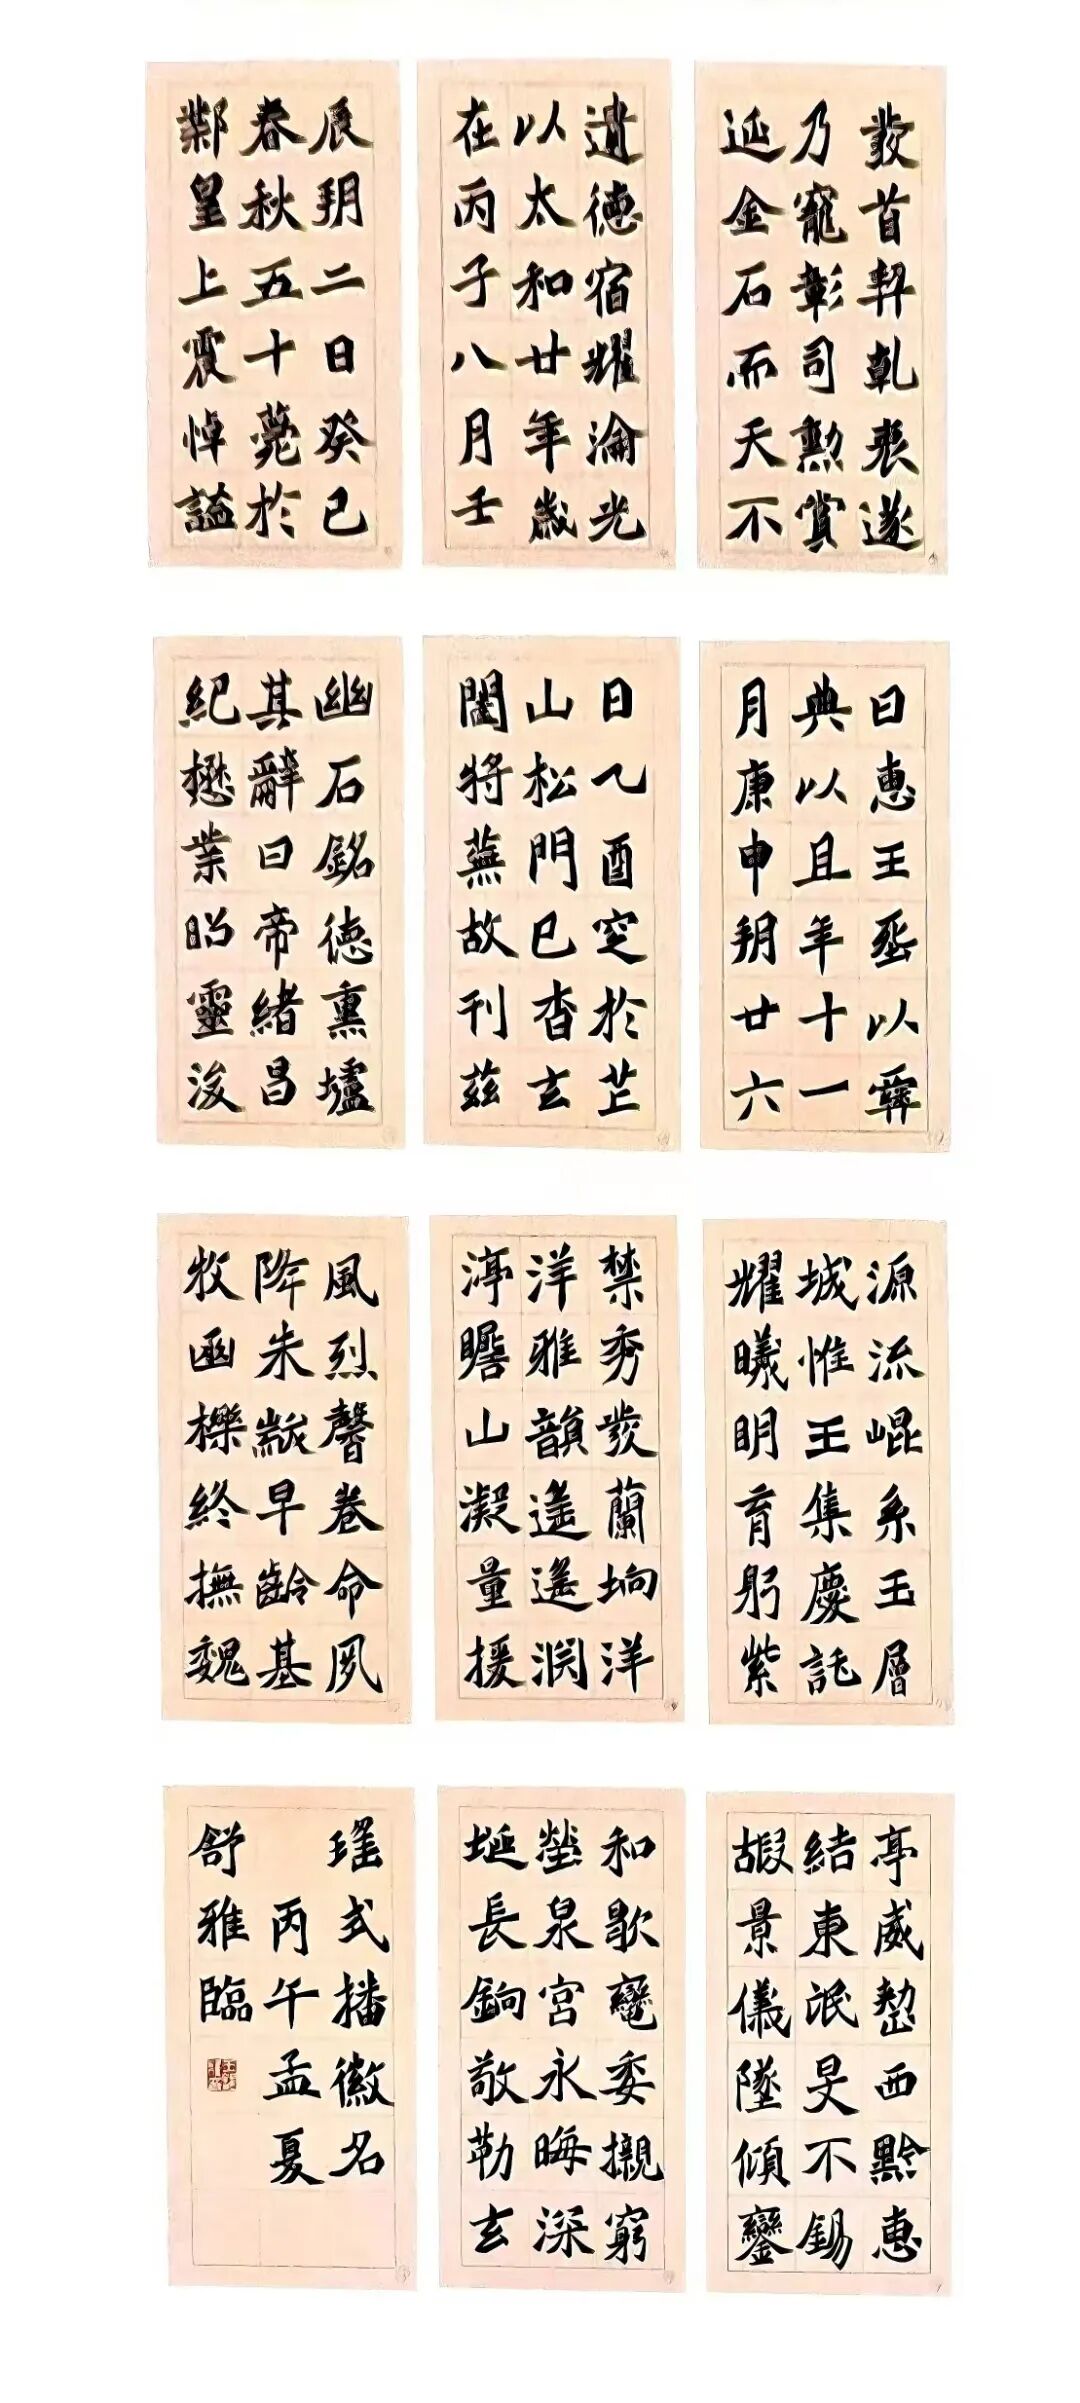 發首契乾衷遂
乃寵彰司勳賞
延金石而天不
遺德宿耀淪光
以太和廿年歲
在丙子八月壬
辰朔二日癸巳
春秋五十薨於
鄴皇上震悼諡
曰惠王丞以彝
典以且年十一
月庚申朔廿六
日乙酉窆於芒
山松門已杳玄
闥將蕪故刊茲
幽石銘德熏壚
其辭曰帝緒昌
紀懋業昭靈浚
源流崐系玉層
城惟王集慶託
耀曦明育躬紫
禁秀發蘭坰洋
洋雅韻遙遙淵
渟瞻山凝量援
風烈馨卷命夙
降朱黻早齡基
牧幽櫟終撫魏
亭威整西黔惠
結東氓旻不錫
嘏景儀墜傾鑾
和歇鼂委櫬窮
塋泉宮永晦深
埏長銄敬勒玄
瑤式播徽名
丙午孟夏
舒雅臨